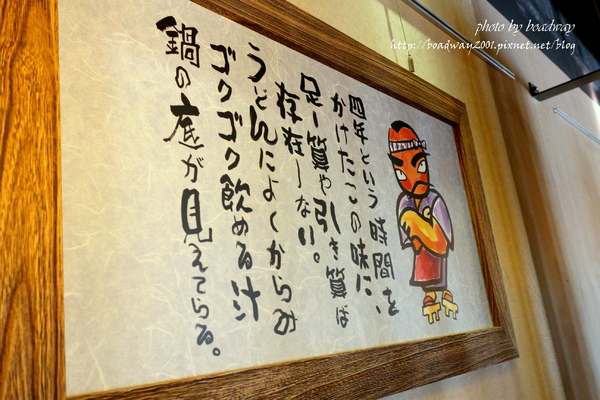 photo by boadway
http://boadway2001.pixnet.net/blog
四年という時間を
かけたこの味に、
足し算や引しき算ば
存在しない。
うどんによくからみ
ゴクゴク飲める汁
鍋の底が見えてらる。